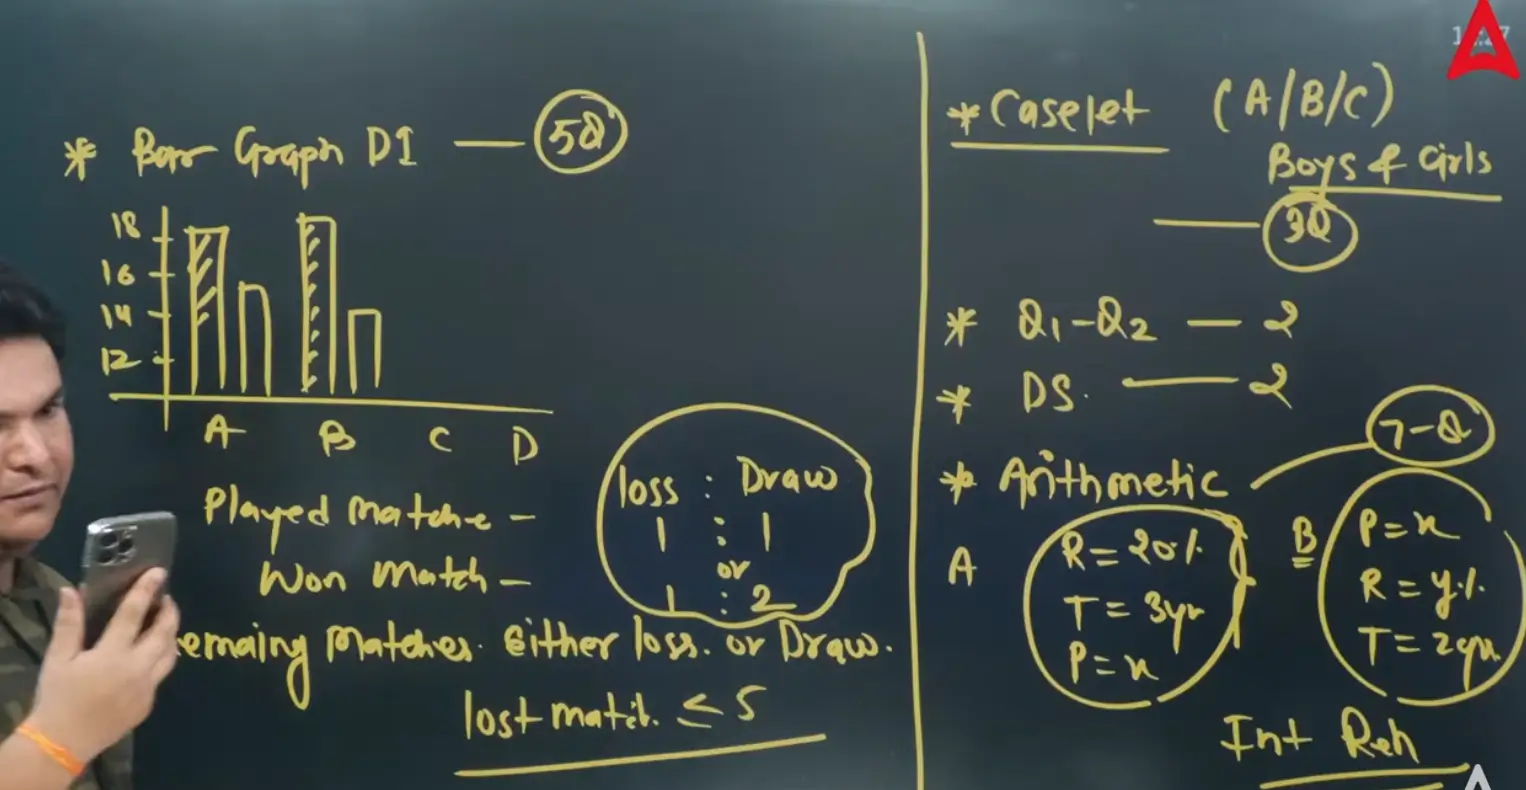 * Bar Graph DI — 5Q
18
16
14
12
A B C D
Played matche -
Won match -
emaing matches. Either loss. or Draw.
lost match. ≤ 5
loss : Draw
1 : 1
or
1 : 2
* Caselet (A/B/C)
Boys & Girls
— 3Q
* Q1-Q2 — 2
* DS. — 2
* Arithmetic — 7-Q
A
R = 20%
T = 3yr
P = x
B
P = x
R = y%
T = 2yr
Int